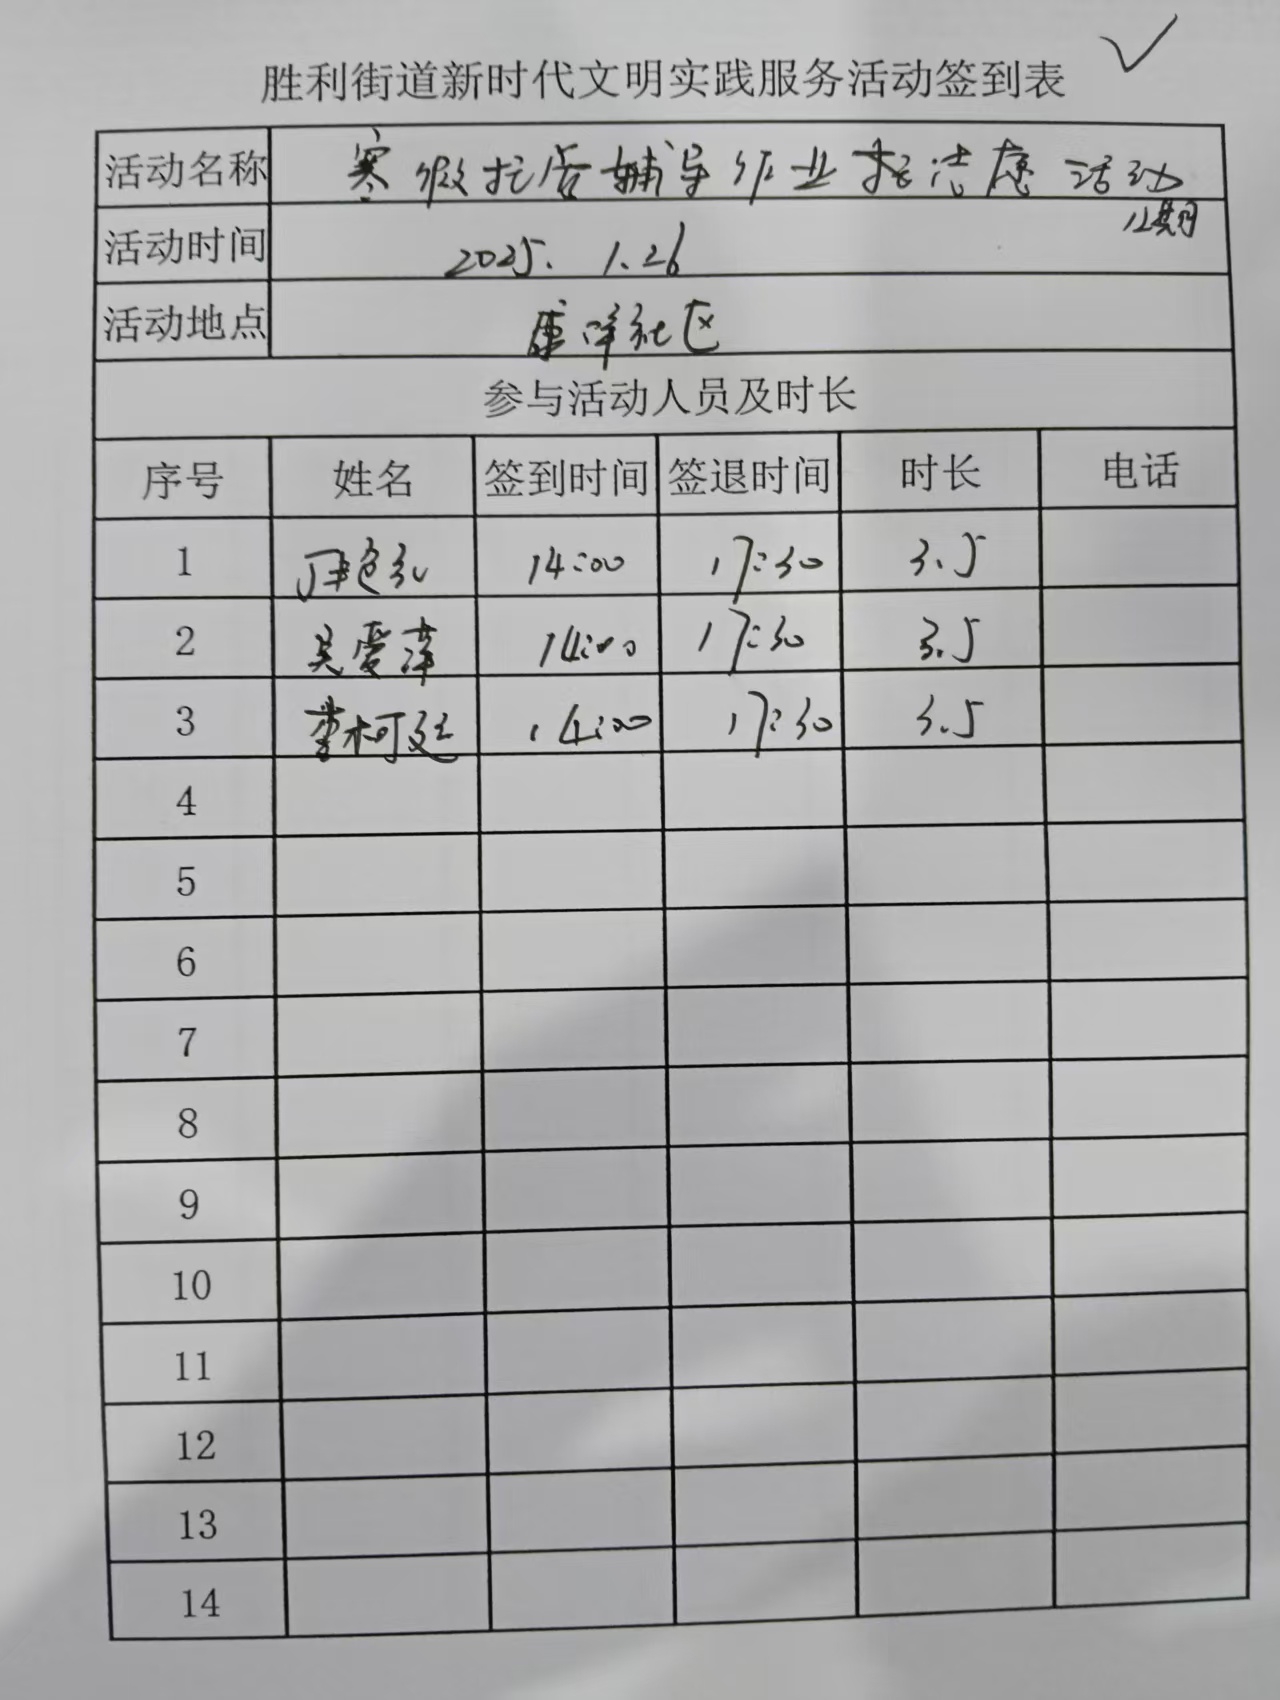 胜利街道新时代文明实践服务活动签到表
活动名称 寒假托管辅导作业 志愿 活动
12期
活动时间 2025. 1.26
活动地点 社区
参与活动人员及时长
序号 姓名 签到时间 签退时间 时长 电话
1 14:00 17:30 3.5
2 吴爱萍 14:00 17:30 3.5
3 李柯廷 14:00 17:30 3.5
4
5
6
7
8
9
10
11
12
13
14